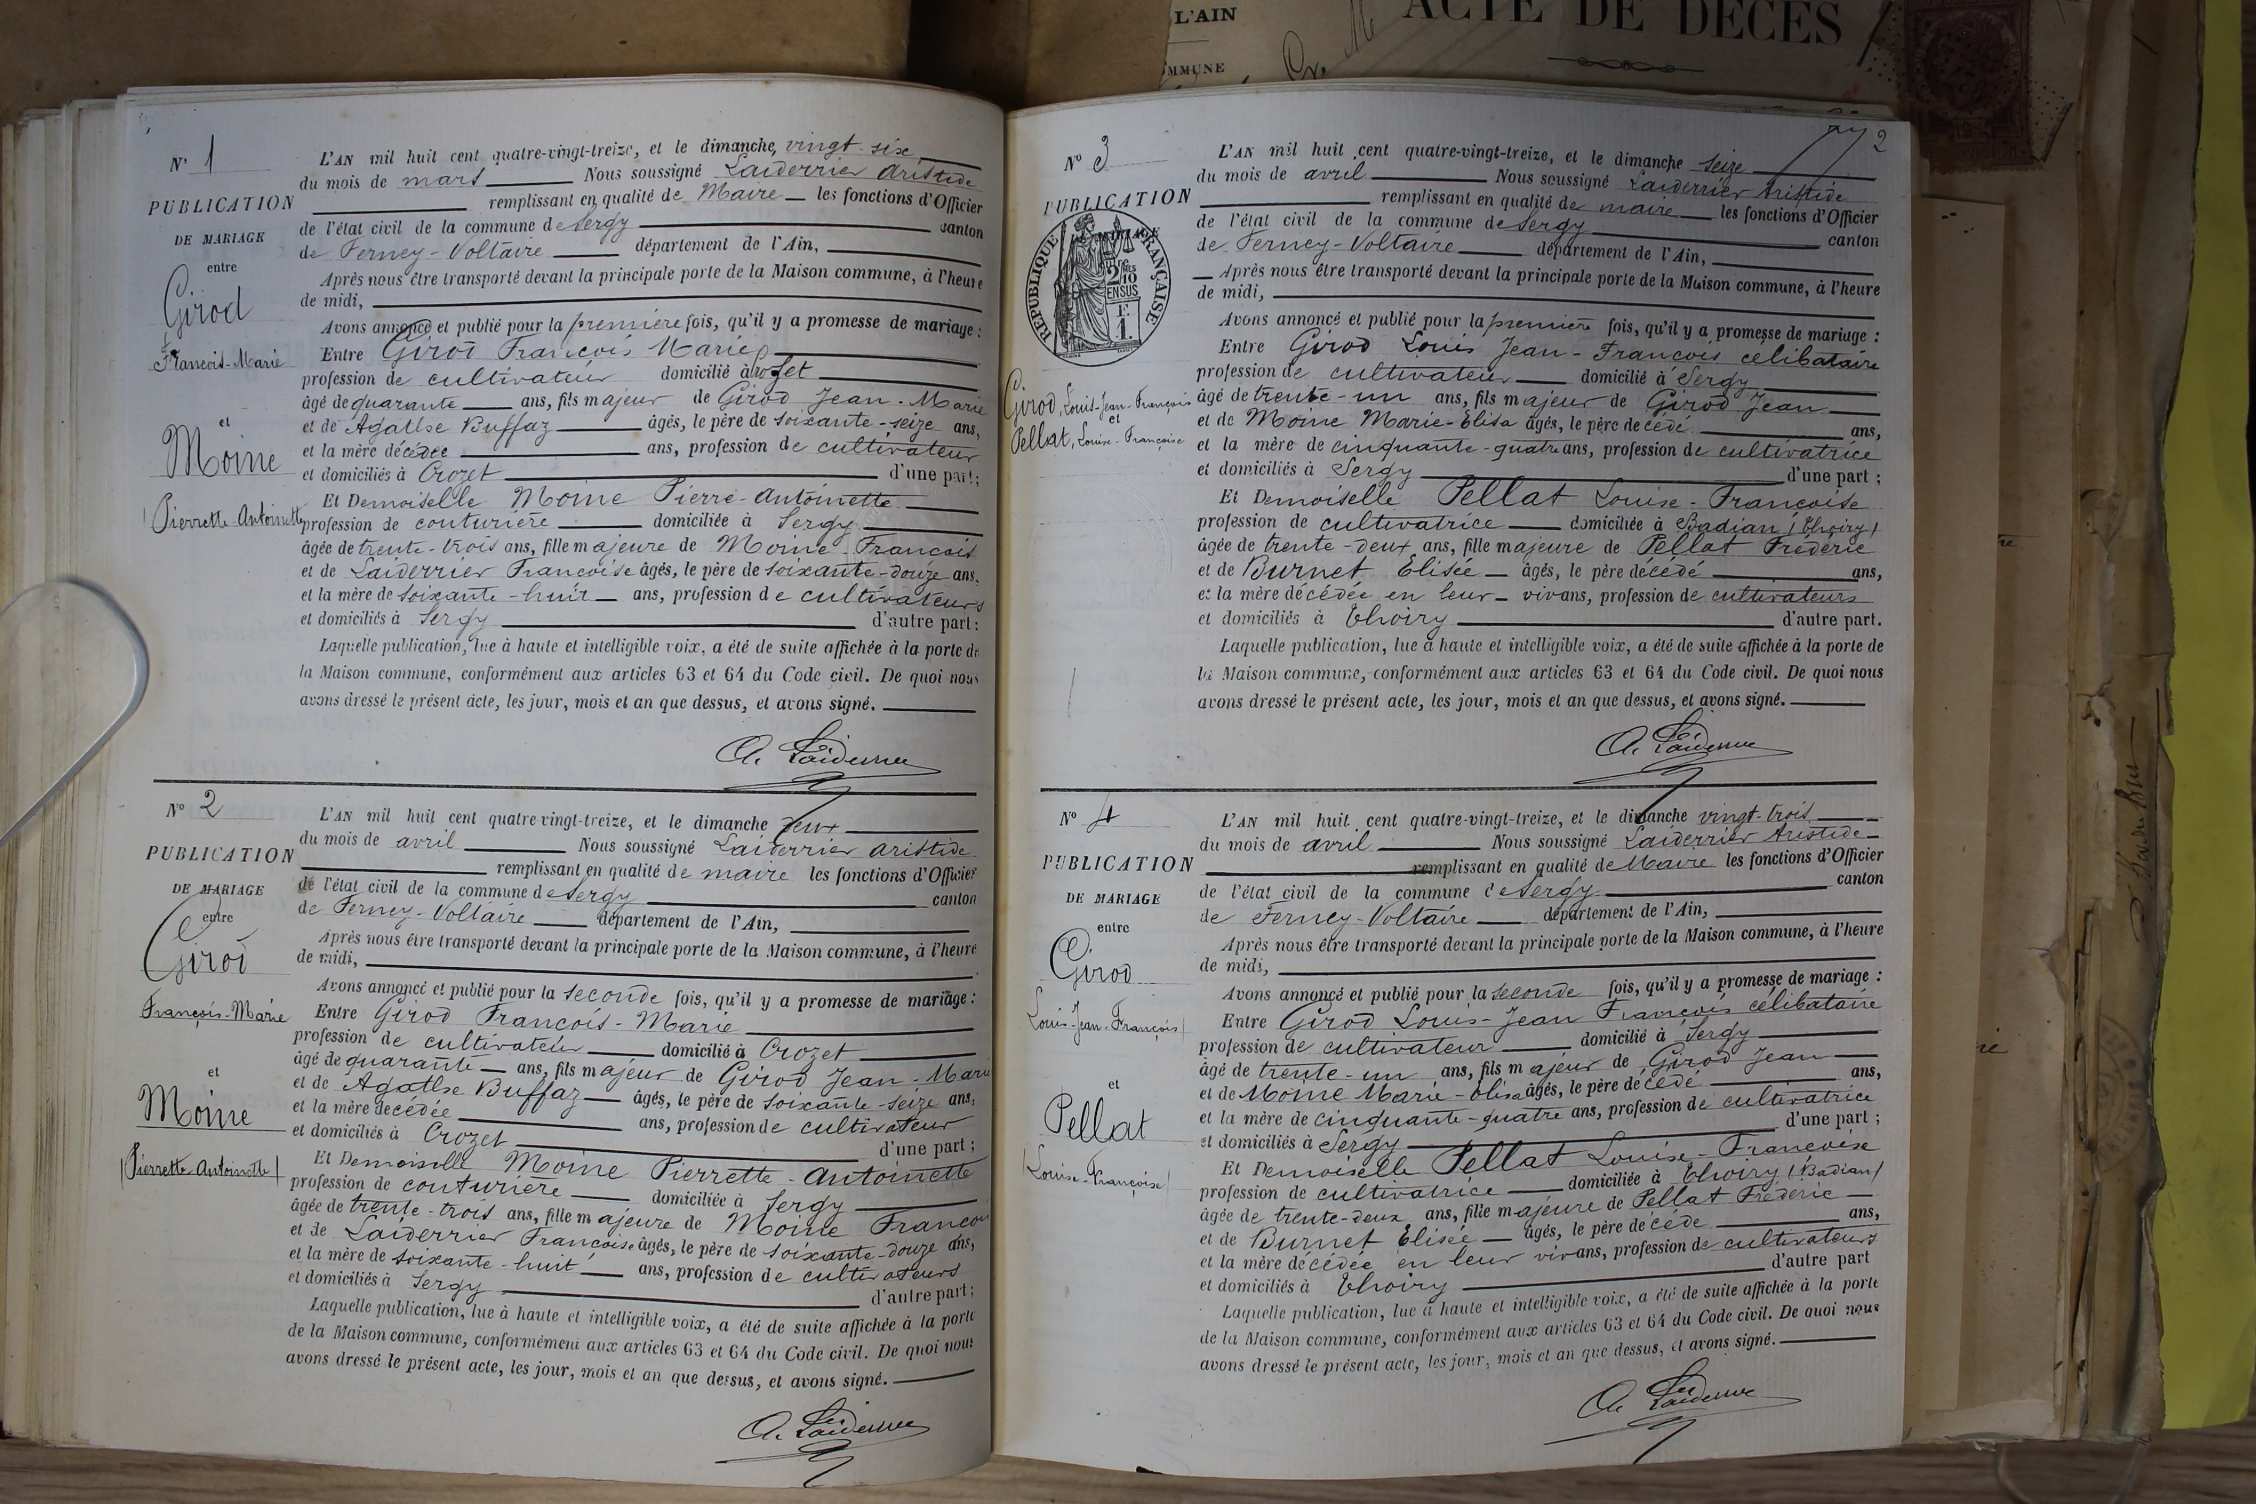 L'AIN
ACTE DE DÉCÈS
MMUNE
N° 1
PUBLICATION
DE MARIAGE
entre
Girod
François-Marie
et
Moine
Pierrette-Antoinette
L'AN mil huit cent quatre-vingt-treize, et le dimanche, vingt-six
du mois de mars Nous soussigné Laiderrier Aristide
remplissant en qualité de Maire les fonctions d'Officier
de l'état civil de la commune de Sergy canton
de Ferney-Voltaire département de l'Ain,
Après nous être transporté devant la principale porte de la Maison commune, à l'heure
de midi,
Avons annoncé et publié pour la première fois, qu'il y a promesse de mariage :
Entre Girod François Marie
profession de cultivateur domicilié à Crozet
âgé de quarante ans, fils majeur de Girod Jean-Marie
et de Agathe Buffaz âgés, le père de soixante-seize ans,
et la mère décédée ans, profession de cultivateur
et domiciliés à Crozet d'une part;
Et Demoiselle Moine Pierre-Antoinette
profession de couturière domiciliée à Sergy
âgée de trente-trois ans, fille majeure de Moine François
et de Laiderrier Françoise âgés, le père de soixante-douze ans,
et la mère de soixante-huit ans, profession de cultivateurs
et domiciliés à Sergy d'autre part;
Laquelle publication, lue à haute et intelligible voix, a été de suite affichée à la porte de
la Maison commune, conformément aux articles 63 et 64 du Code civil. De quoi nous
avons dressé le présent acte, les jour, mois et an que dessus, et avons signé.
A. Laiderrier
N° 2
PUBLICATION
DE MARIAGE
entre
Girod
François-Marie
et
Moine
(Pierrette-Antoinette)
L'AN mil huit cent quatre-vingt-treize, et le dimanche deux
du mois de avril Nous soussigné Laiderrier Aristide
remplissant en qualité de maire les fonctions d'Officier
de l'état civil de la commune de Sergy canton
de Ferney-Voltaire département de l'Ain,
Après nous être transporté devant la principale porte de la Maison commune, à l'heure
de midi,
Avons annoncé et publié pour la seconde fois, qu'il y a promesse de mariage :
Entre Girod François-Marie
profession de cultivateur domicilié à Crozet
âgé de quarante ans, fils majeur de Girod Jean-Marie
et de Agathe Buffaz âgés, le père de soixante-seize ans,
et la mère décédée ans, profession de cultivateur
et domiciliés à Crozet d'une part;
Et Demoiselle Moine Pierrette-Antoinette
profession de couturière domiciliée à Sergy
âgée de trente-trois ans, fille majeure de Moine François
et de Laiderrier Françoise âgés, le père de soixante-douze ans,
et la mère de soixante-huit ans, profession de cultivateurs
et domiciliés à Sergy d'autre part;
Laquelle publication, lue à haute et intelligible voix, a été de suite affichée à la porte
de la Maison commune, conformément aux articles 63 et 64 du Code civil. De quoi nous
avons dressé le présent acte, les jour, mois et an que dessus, et avons signé.
A. Laiderrier
2
N° 3
PUBLICATION
RÉPUBLIQUE FRANÇAISE
2/10 EN SUS
1 F.
Girod, Louis-Jean-François
et
Pellat, Louise-Françoise
L'AN mil huit cent quatre-vingt-treize, et le dimanche seize
du mois de avril Nous soussigné Laiderrier Aristide
remplissant en qualité de maire les fonctions d'Officier
de l'état civil de la commune de Sergy canton
de Ferney-Voltaire département de l'Ain,
Après nous être transporté devant la principale porte de la Maison commune, à l'heure
de midi,
Avons annoncé et publié pour la première fois, qu'il y a promesse de mariage :
Entre Girod Louis Jean-François célibataire
profession de cultivateur domicilié à Sergy
âgé de trente-un ans, fils majeur de Girod Jean
et de Moine Marie-Elisa âgés, le père decédé ans,
et la mère de cinquante-quatre ans, profession de cultivatrice
et domiciliés à Sergy d'une part ;
Et Demoiselle Pellat Louise-Françoise
profession de cultivatrice domiciliée à Badian (Thoiry)
âgée de trente-deux ans, fille majeure de Pellat Frédéric
et de Burnet Elisée âgés, le père décédé ans,
et la mère décédée en leur vivans, profession de cultivateurs
et domiciliés à Thoiry d'autre part.
Laquelle publication, lue à haute et intelligible voix, a été de suite affichée à la porte de
la Maison commune, conformément aux articles 63 et 64 du Code civil. De quoi nous
avons dressé le présent acte, les jour, mois et an que dessus, et avons signé.
A. Laiderrier
N° 4
PUBLICATION
DE MARIAGE
entre
Girod
Louis-Jean-François
et
Pellat
(Louise-Françoise)
L'AN mil huit cent quatre-vingt-treize, et le dimanche vingt-trois
du mois de avril Nous soussigné Laiderrier Aristide
remplissant en qualité de Maire les fonctions d'Officier
de l'état civil de la commune de Sergy canton
de Ferney-Voltaire département de l'Ain,
Après nous être transporté devant la principale porte de la Maison commune, à l'heure
de midi,
Avons annoncé et publié pour la seconde fois, qu'il y a promesse de mariage :
Entre Girod Louis-Jean François célibataire
profession de cultivateur domicilié à Sergy
âgé de trente-un ans, fils majeur de Girod Jean
et de Moine Marie-Elisa âgés, le père décédé ans,
et la mère de cinquante-quatre ans, profession de cultivatrice
et domiciliés à Sergy d'une part ;
Et Demoiselle Pellat Louise-Françoise
profession de cultivatrice domiciliée à Thoiry (Badian)
âgée de trente-deux ans, fille majeure de Pellat Frédéric
et de Burnet Elisée âgés, le père décédé ans,
et la mère décédée en leur vivans, profession de cultivateurs
et domiciliés à Thoiry d'autre part
Laquelle publication, lue à haute et intelligible voix, a été de suite affichée à la porte
de la Maison commune, conformément aux articles 63 et 64 du Code civil. De quoi nous
avons dressé le présent acte, les jour, mois et an que dessus, et avons signé.
A. Laiderrier